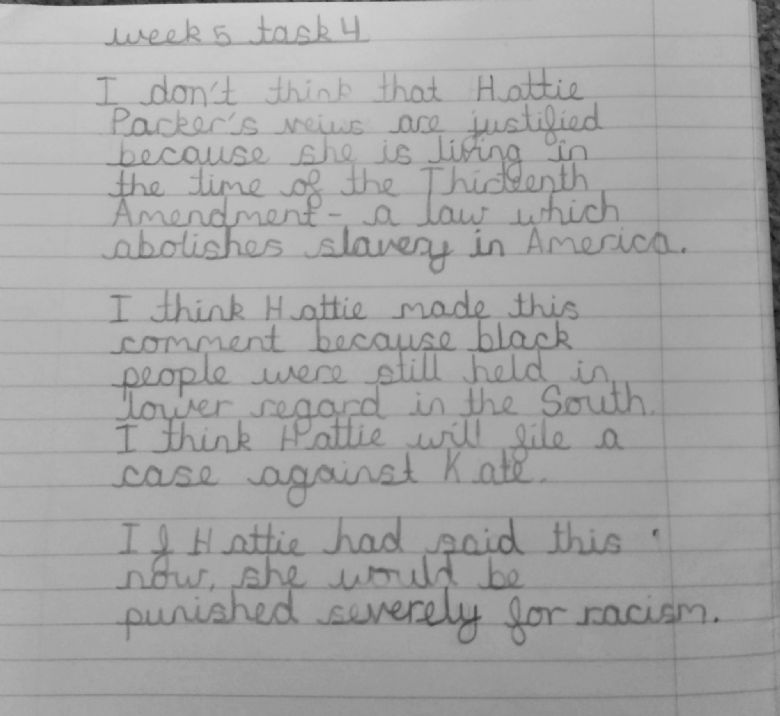 week 5 task 4
I don't think that Hattie
Parker's veiws are justified
because she is living in
the time of the Thirteenth
Amendment - a law which
abolishes slavery in America.
I think Hattie made this
comment because black
people were still held in
lower regard in the South.
I think Hattie will file a
case against Kate.
If Hattie had said this
now, she would be
punished severely for racism.